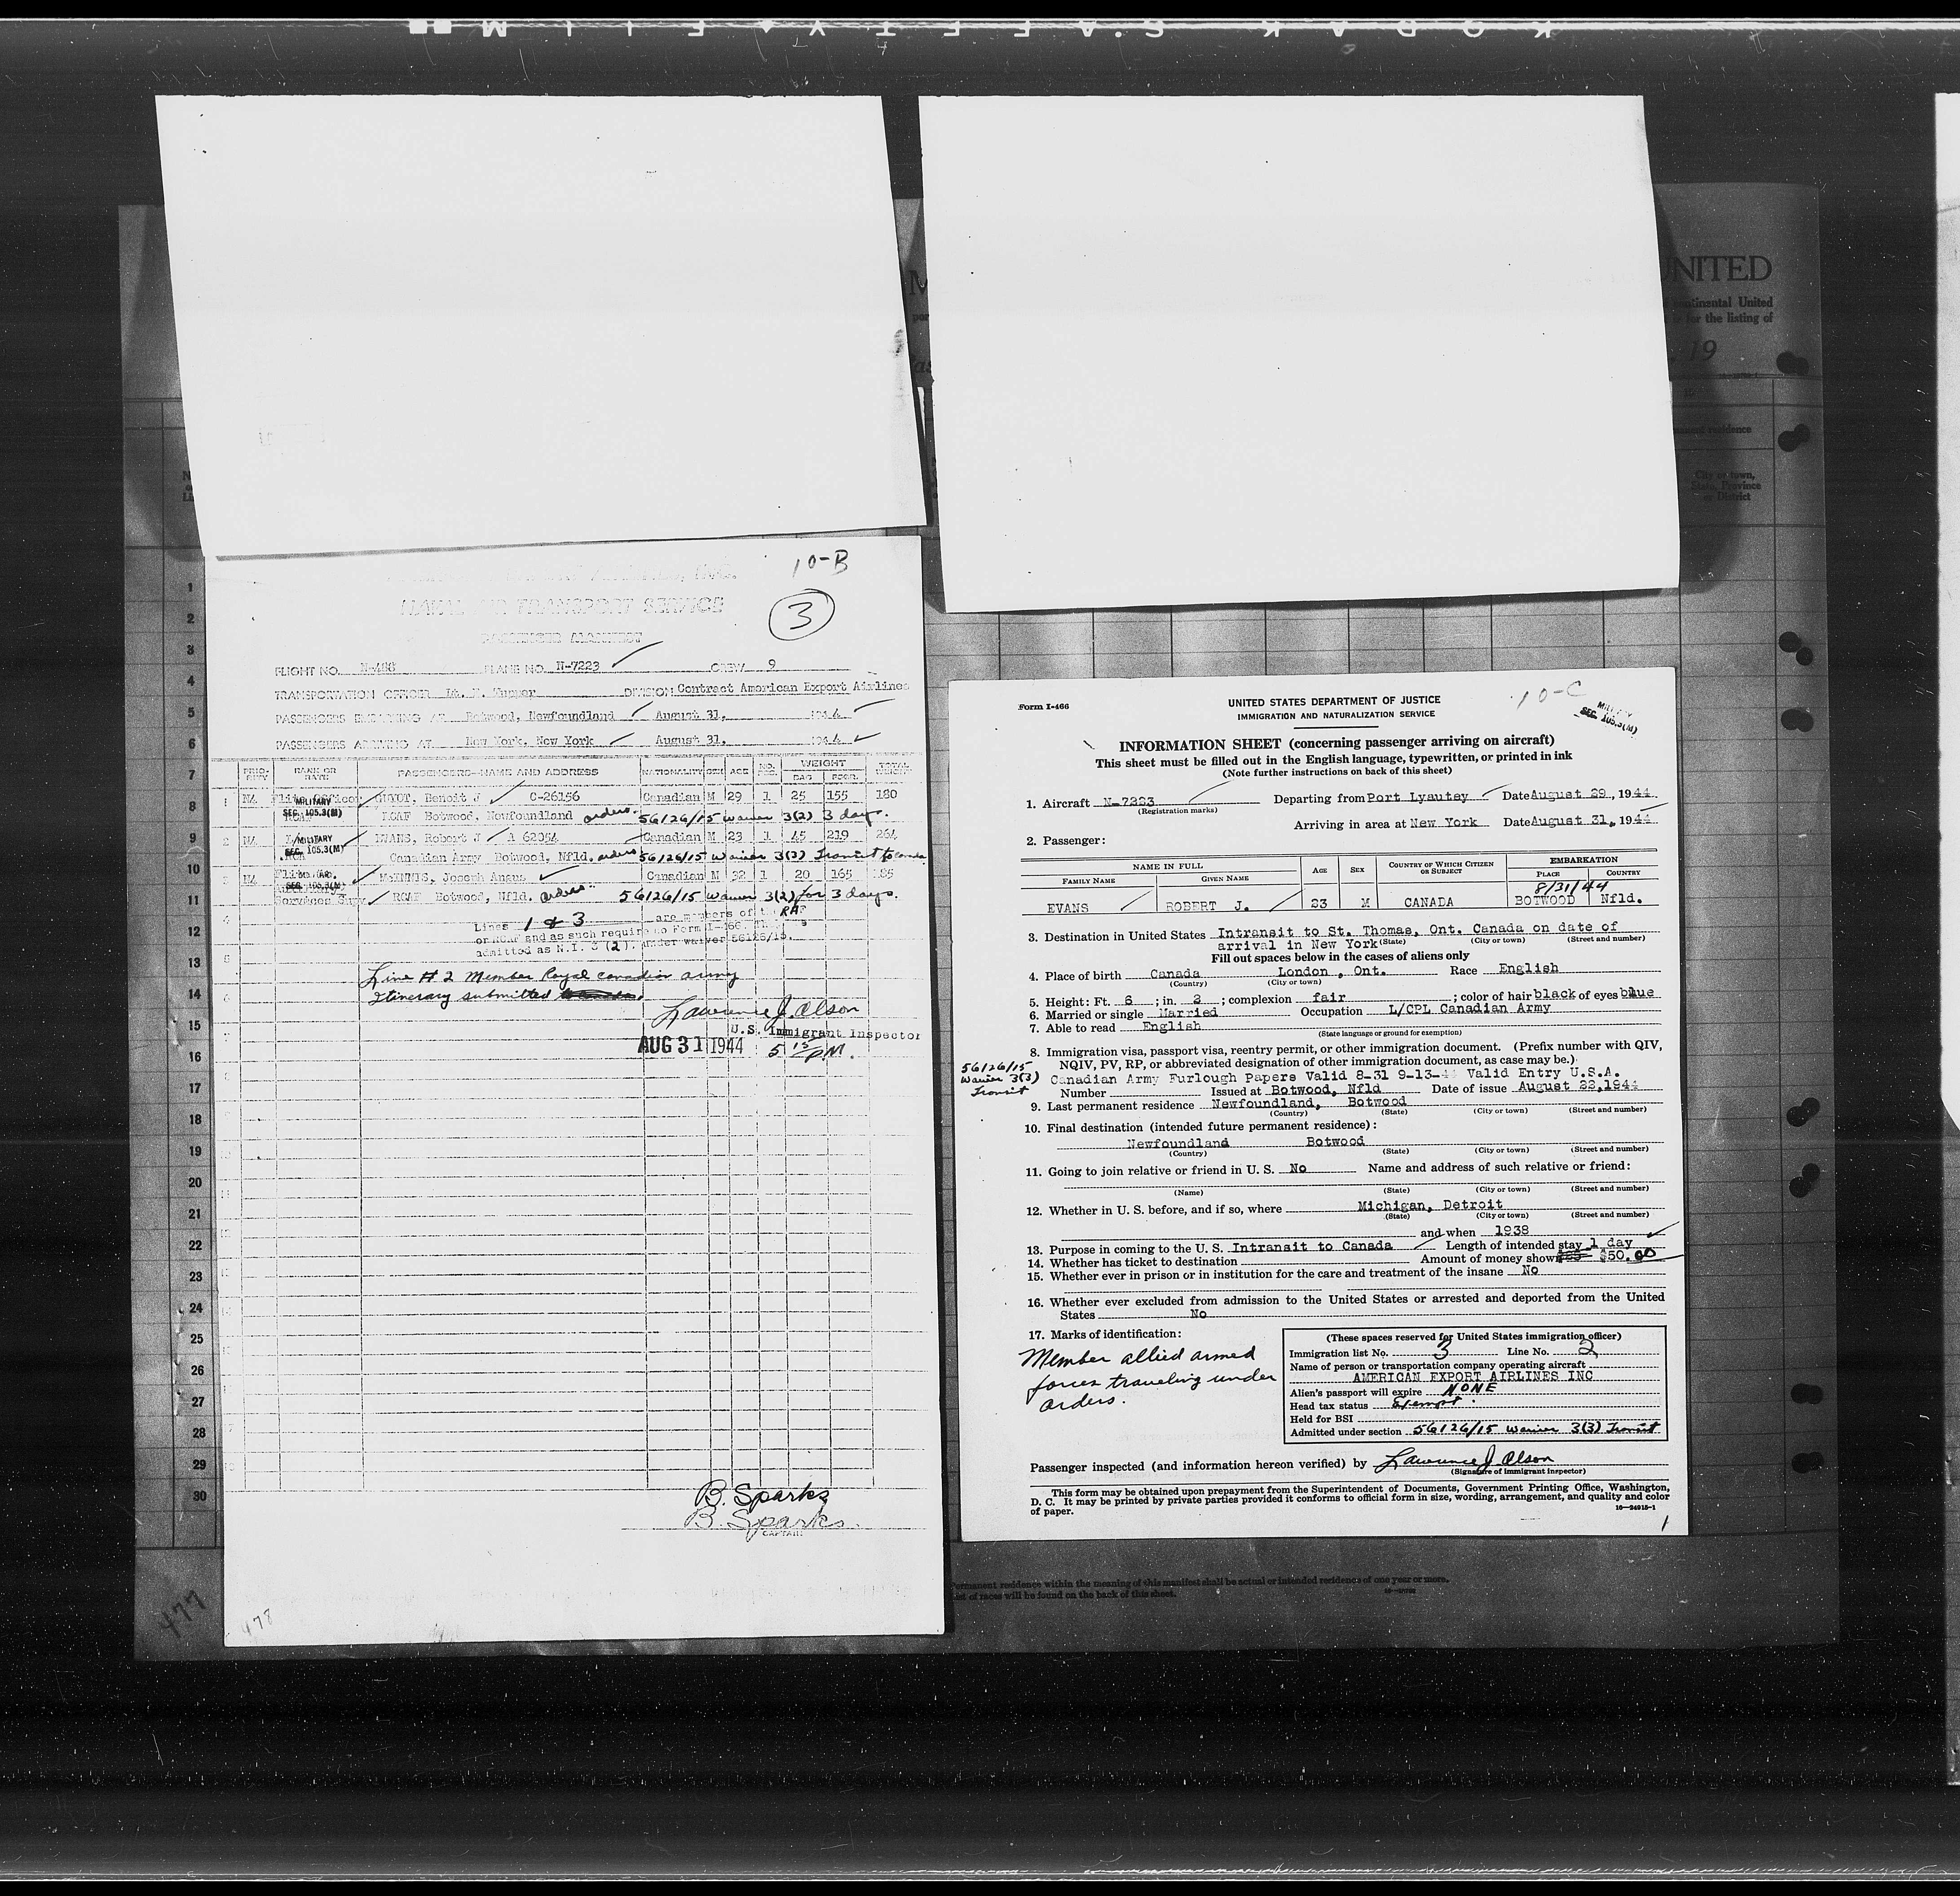 KODAK SAFETY FILM
UNITED
continental United
for the listing of
19
City or town,
State, Province
or District
10-B
NAVAL AIR TRANSPORT SERVICE
3
PASSENGER MANIFEST
FLIGHT NO. N-488 PLANE NO. N-7223 CREW 9
TRANSPORTATION OFFICER Lt. DIVISION Contract American Export Airlines
PASSENGERS EMBARKING AT Botwood, Newfoundland August 31, 1944
PASSENGERS ARRIVING AT New York, New York August 31, 1944
PRIORITY RANK OR RATE PASSENGERS—NAME AND ADDRESS NATIONALITY SEX AGE NO. PCS. WEIGHT BAG PSGR. TOTAL WEIGHT
1 NA Flite Officer GUYOT, Benoit J C-26156 Canadian M 29 1 25 155 180
MILITARY SEC. 105.3(M) RCAF Botwood, Newfoundland orders. 56126/15 waiver 3(2) 3 days.
2 NA EVANS, Robert J A 62054 Canadian M 23 1 45 219 264
MILITARY SEC. 105.3(M) Canadian Army Botwood, Nfld. orders 56126/15 waiver 3(3) Transit to Canada
3 NA McINNIS, Joseph Angus Canadian M 32 1 20 165 185
SEC. 105.3(M) RCAF Botwood, Nfld. orders 56126/15 waiver 3(2) for 3 days.
Lines 1 & 3 are members of the RAF
or RCAF and as such require no Form I-466.
admitted as N.I. 3 (2), under waiver 56126/15.
Line # 2 Member Royal Canadian army
Itinerary submitted
Lawrence J. Olson
U.S. Immigrant Inspector
AUG 31 1944 5 15 PM.
B. Sparks
B. Sparks.
CAPTAIN
478
477
1
2
3
4
5
6
7
8
9
10
11
12
13
14
15
16
17
18
19
20
21
22
23
24
25
26
27
28
29
30
Form I-466
UNITED STATES DEPARTMENT OF JUSTICE
IMMIGRATION AND NATURALIZATION SERVICE
10-C
MILITARY
SEC. 105.3(M)
INFORMATION SHEET (concerning passenger arriving on aircraft)
This sheet must be filled out in the English language, typewritten, or printed in ink
(Note further instructions on back of this sheet)
1. Aircraft N-7223 Departing from Port Lyautey Date August 29, 1944
(Registration marks)
Arriving in area at New York Date August 31, 1944
2. Passenger:
NAME IN FULL AGE SEX COUNTRY OF WHICH CITIZEN OR SUBJECT EMBARKATION
FAMILY NAME GIVEN NAME PLACE COUNTRY
8/31/44
EVANS ROBERT J. 23 M CANADA BOTWOOD Nfld.
3. Destination in United States Intransit to St. Thomas, Ont. Canada on date of
arrival in New York (State) (City or town) (Street and number)
Fill out spaces below in the cases of aliens only
4. Place of birth Canada London, Ont. Race English
(Country) (City or town)
5. Height: Ft. 6; in. 2; complexion fair; color of hair black of eyes blue
6. Married or single Married Occupation L/CPL Canadian Army
7. Able to read English
(State language or ground for exemption)
8. Immigration visa, passport visa, reentry permit, or other immigration document. (Prefix number with QIV,
NQIV, PV, RP, or abbreviated designation of other immigration document, as case may be.)
56126/15
Waiver 3(3)
Transit
Canadian Army Furlough Papers Valid 8-31 9-13-44 Valid Entry U.S.A.
Number Issued at Botwood, Nfld Date of issue August 22, 1944
9. Last permanent residence Newfoundland, Botwood
(Country) (State) (City or town) (Street and number)
10. Final destination (intended future permanent residence):
Newfoundland Botwood
(Country) (State) (City or town) (Street and number)
11. Going to join relative or friend in U. S. No Name and address of such relative or friend:
(Name) (State) (City or town) (Street and number)
12. Whether in U. S. before, and if so, where Michigan, Detroit
(State) (City or town) (Street and number)
and when 1938
13. Purpose in coming to the U. S. Intransit to Canada Length of intended stay 1 day
14. Whether has ticket to destination Amount of money shown $50.00
15. Whether ever in prison or in institution for the care and treatment of the insane No
16. Whether ever excluded from admission to the United States or arrested and deported from the United
States No
17. Marks of identification:
Member allied armed
forces traveling under
orders.
(These spaces reserved for United States immigration officer)
Immigration list No. 3 Line No. 2
Name of person or transportation company operating aircraft
AMERICAN EXPORT AIRLINES INC
Alien's passport will expire NONE
Head tax status Exempt.
Held for BSI
Admitted under section 56126/15 waiver 3(3) Transit
Passenger inspected (and information hereon verified) by Lawrence J. Olson
(Signature of immigrant inspector)
This form may be obtained upon prepayment from the Superintendent of Documents, Government Printing Office, Washington,
D. C. It may be printed by private parties provided it conforms to official form in size, wording, arrangement, and quality and color
of paper.
16—24915-1
1
Permanent residence within the meaning of this manifest shall be actual or intended residence of one year or more.
List of races will be found on the back of this sheet.